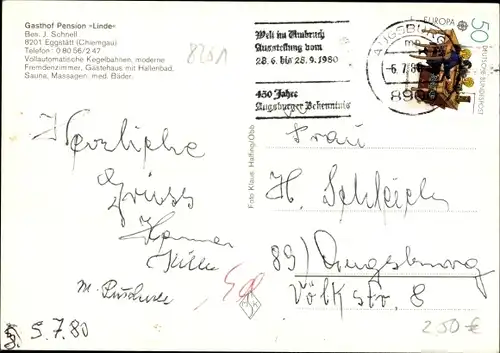 Gasthof Pension »Linde«
Bes. J. Schnell
8201 Eggstätt (Chiemgau)
Telefon: 0 80 56/2 47
Vollautomatische Kegelbahnen, moderne
Fremdenzimmer, Gästehaus mit Hallenbad,
Sauna, Massagen, med. Bäder.
8201
Welt im Umbruch
Ausstellung vom
28. 6. bis 28. 9. 1980
450 Jahre
Augsburger Bekenntnis
AUGSBURG
-6.7.80
8900
EUROPA
50
DEUTSCHE BUNDESPOST
Foto Klaus, Halfing/Obb
Herzliche
Grüsse
5.7.80
Frau
H.
89) Augsburg
Völkstr. 8
2,50 €